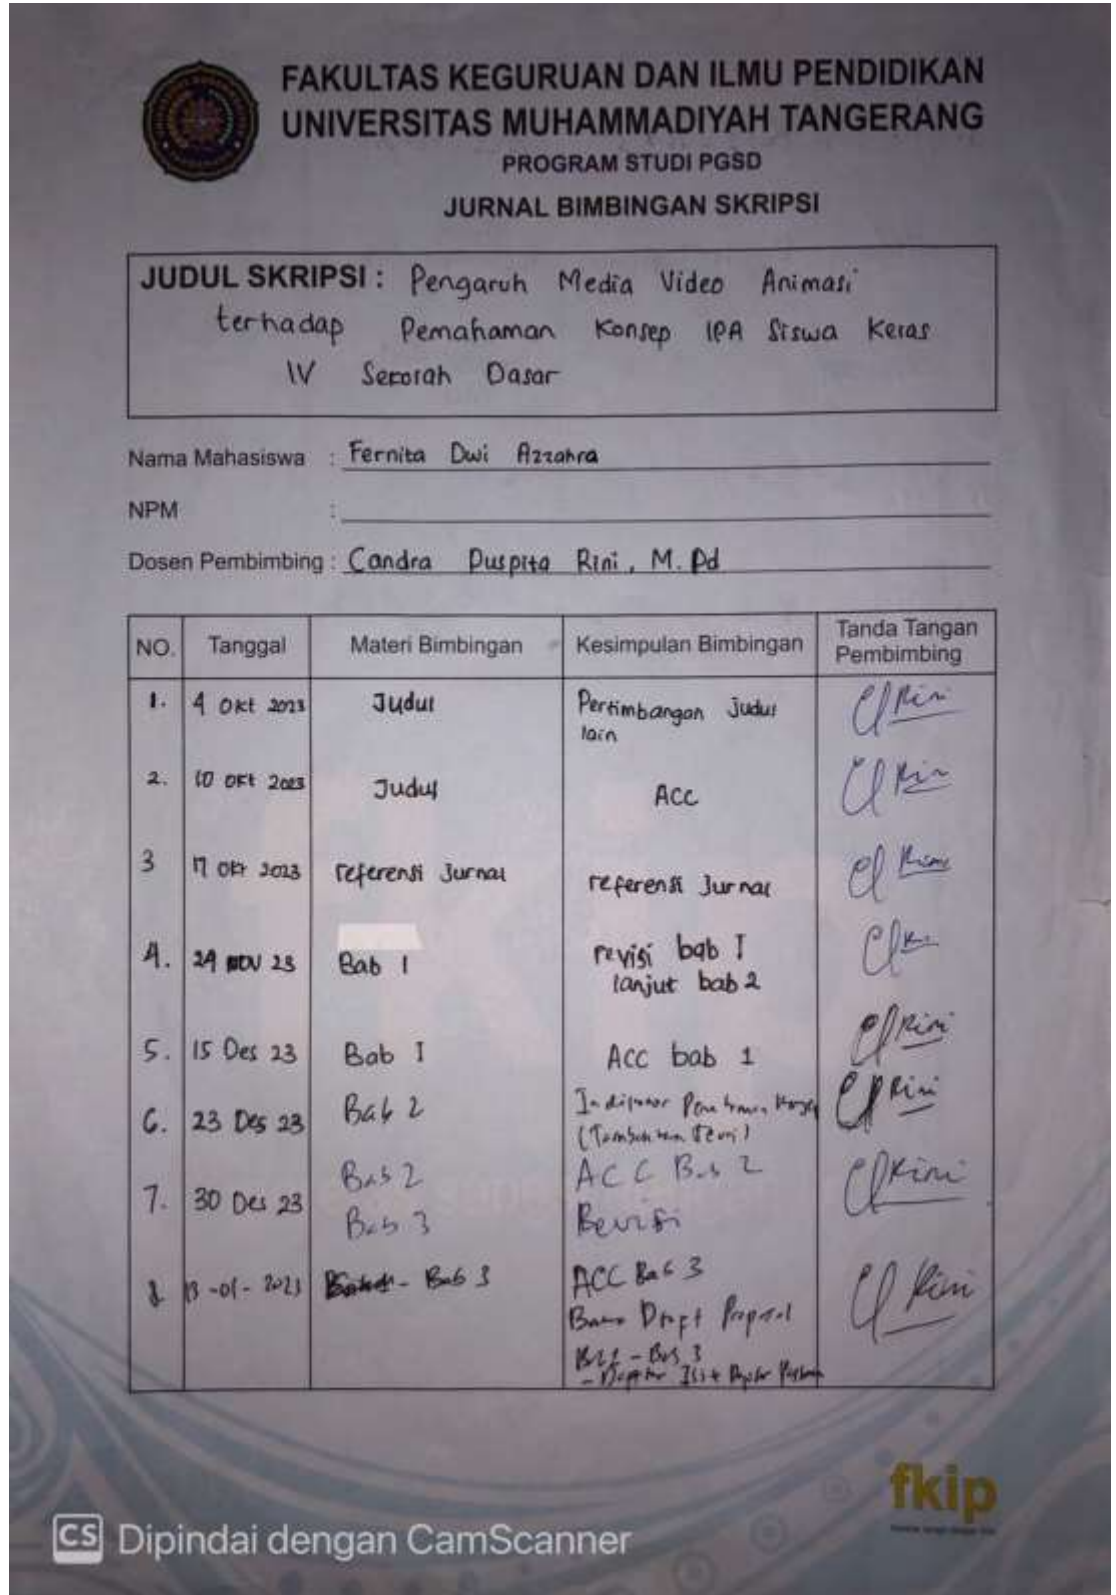 FAKULTAS KEGURUAN DAN ILMU PENDIDIKAN
UNIVERSITAS MUHAMMADIYAH TANGERANG
PROGRAM STUDI PGSD
JURNAL BIMBINGAN SKRIPSI
JUDUL SKRIPSI : Pengaruh Media Video Animasi
terhadap Pemahaman Konsep IPA Siswa Kelas
IV Sekolah Dasar
Nama Mahasiswa : Fernita Dwi Azzahra
NPM :
Dosen Pembimbing : Candra Puspita Rini, M.Pd
NO. Tanggal Materi Bimbingan Kesimpulan Bimbingan Tanda Tangan Pembimbing
1. 4 Okt 2023 Judul Pertimbangan judul
lain
Rini
2. 10 Okt 2023 Judul ACC
3 17 Okt 2023 referensi Jurnal referensi Jurnal
4. 24 NOV 23 Bab 1 revisi bab I
lanjut bab 2
5. 15 Des 23 Bab I ACC bab 1 Rini
6. 23 Des 23 Bab 2
Rini
7. 30 Des 23 Bab 2 ACC Bab 2 Rini
Bab 3 Revisi
13-01-2023 Bab 3 ACC Bab 3 Rini
Draft Proposal
Bab 3
fkip
CS Dipindai dengan CamScanner